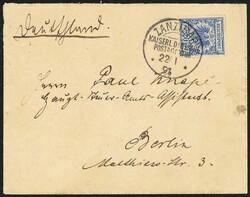 Deutschland.
ZANZIBAR
KAISERL. DEUTSCHE
POSTAGENTUR
22 1
91
Herrn Paul Knape
Haupt-Steuer-Amts-Assistent.
Berlin
Matthieu-Str. 3.